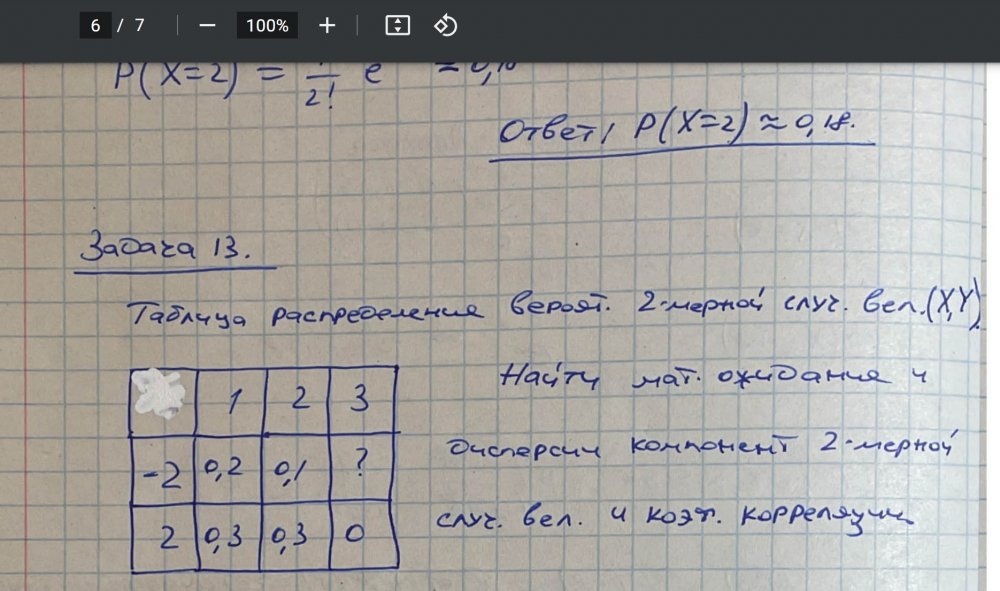 6 / 7 100%
P(X=2) = 2! e ≈ 0,18
Ответ: P(X=2) ≈ 0,18.
Задача 13.
Таблица распределения вероят. 2-мерной случ. вел. (X,Y).
Найти мат. ожидания и
дисперсии компонент 2-мерной
случ. вел. и коэф. корреляции
1 2 3
-2 0,2 0,1 ?
2 0,3 0,3 0